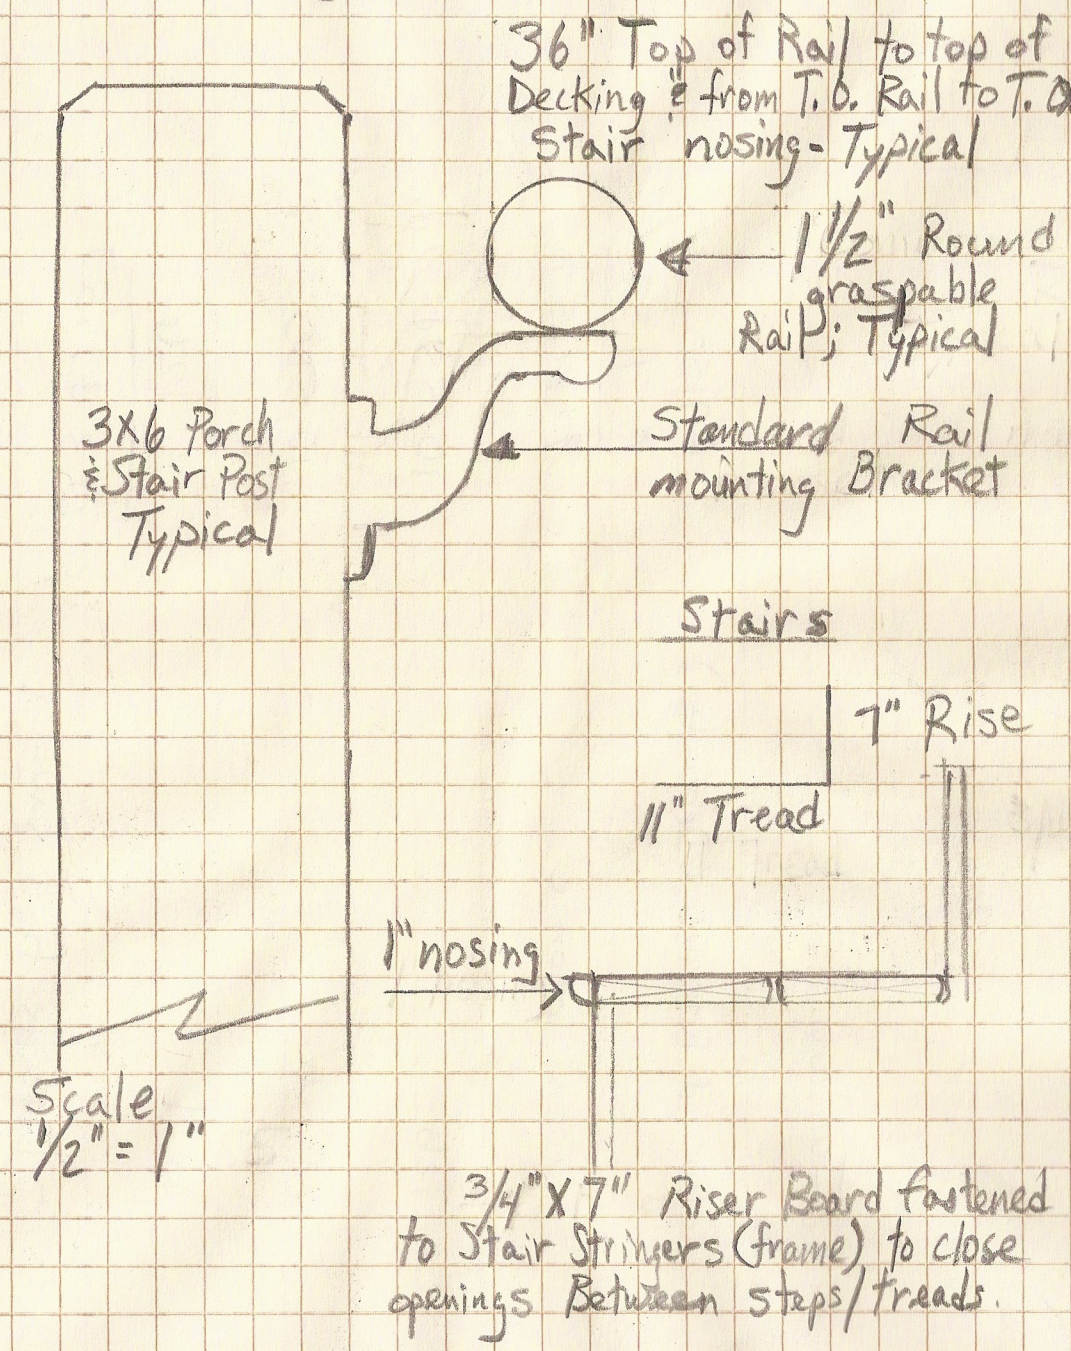 36" Top of Rail to top of
Decking & from T.O. Rail to T.O
Stair nosing - Typical
1 1/2" Round
graspable
Rail; Typical
3X6 Porch
& Stair Post
Typical
Standard Rail
mounting Bracket
Stairs
7" Rise
11" Tread
1" nosing
Scale
1/2" = 1"
3/4" X 7" Riser Board fastened
to Stair Stringers (frame) to close
openings Between steps/treads.